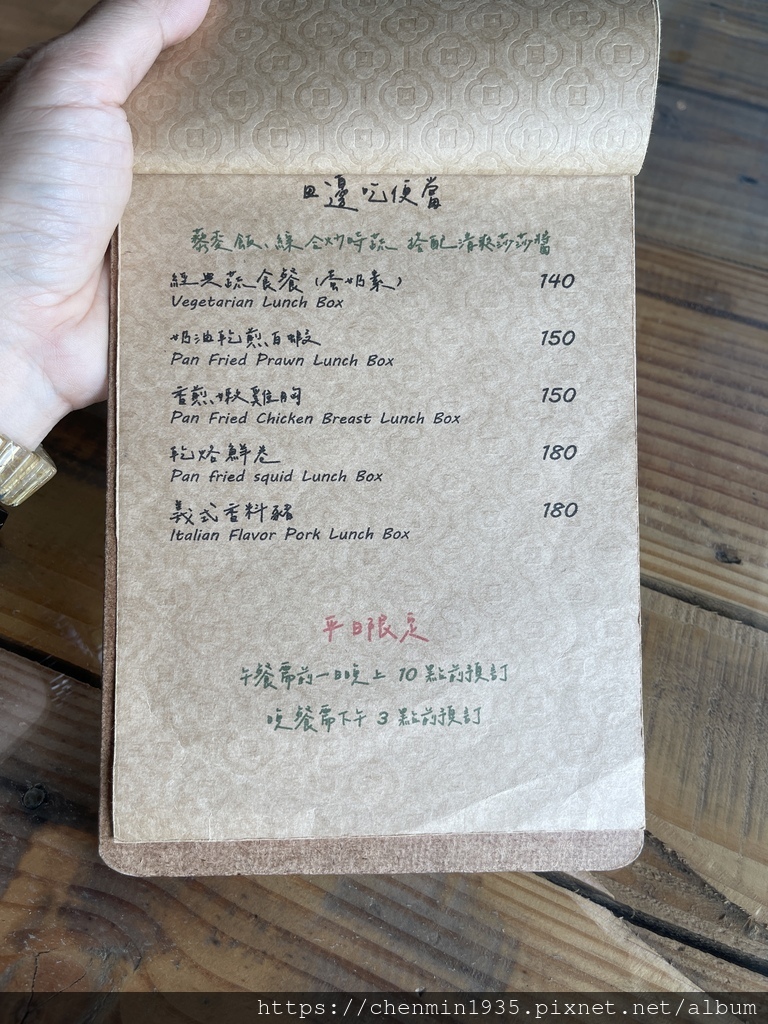 田邊吃便當
藜麥飯、綜合炒時蔬 搭配清爽莎莎醬
經典蔬食餐(蛋奶素) 140
Vegetarian Lunch Box
奶油乾煎白蝦 150
Pan Fried Prawn Lunch Box
香煎嫩雞胸 150
Pan Fried Chicken Breast Lunch Box
乾烙鮮卷 180
Pan fried squid Lunch Box
義式香料豬 180
Italian Flavor Pork Lunch Box
平日限定
午餐需前一日晚上 10 點前預訂
晚餐需下午 3 點前預訂
https://chenmin1935.pixnet.net/album